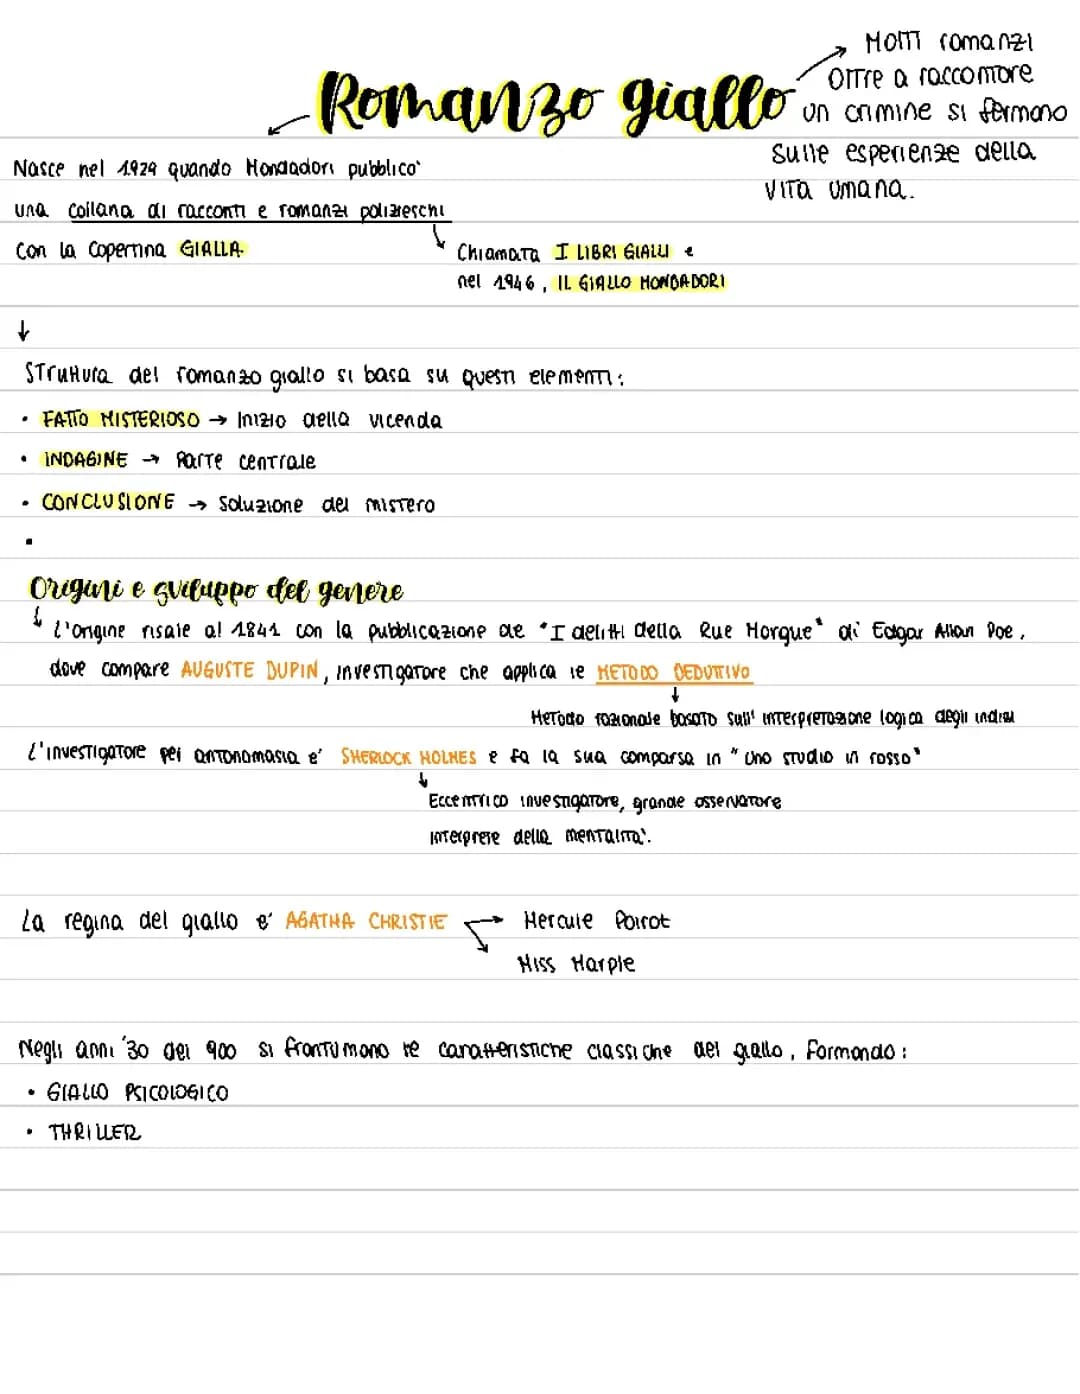 Romanzo giallo
Molti romanzi
oltre a raccontare
un crimine si fermano
sulle esperienze della
vita umana.
Nasce nel 1929 quando Mondadori pubblico'
una collana di racconti e romanzi polizieschi
con la copertina GIALLA
Chiamata I LIBRI GIALLI e
nel 1946, IL GIALLO MONDADORI
Struttura del romanzo giallo si basa su questi elementi:
• FATTO MISTERIOSO → Inizio della vicenda
• INDAGINE → Parte centrale
• CONCLUSIONE → Soluzione del mistero
•
Origini e sviluppo del genere
L'origine risale al 1841 con la pubblicazione de "I delitti della Rue Morgue" di Edgar Allan Poe,
dove compare AUGUSTE DUPIN, investigatore che applica il METODO DEDUTTIVO
Metodo razionale basato sull'interpretazione logica degli indizi
L'investigatore per antonomasia e' SHERLOCK HOLMES e fa la sua comparsa in "Uno studio in rosso"
Eccentrico investigatore, grande osservatore
interprete della mentalita'.
La regina del giallo e' AGATHA CHRISTIE → Hercule Poirot
Miss Marple
Negli anni '30 del 900 si frantumano le caratteristiche classiche del giallo, formando:
• GIALLO PSICOLOGICO
• THRILLER